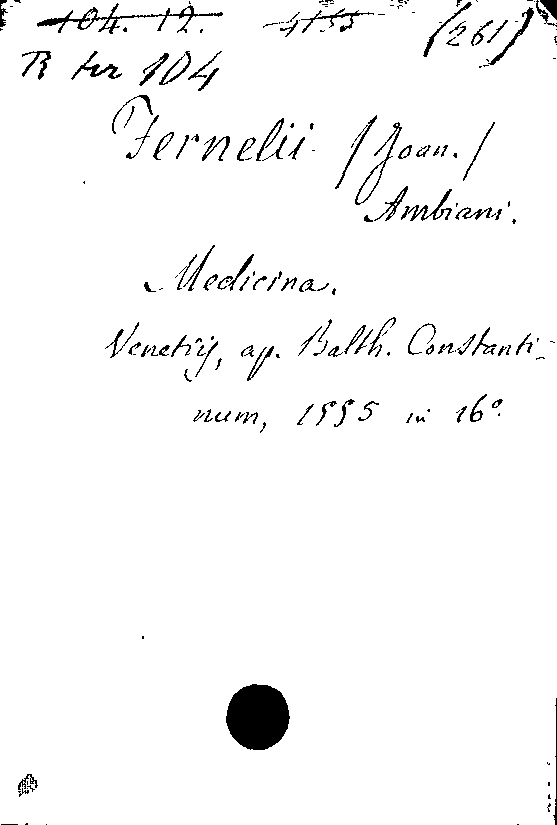 104. 12. 4155 (261)
R ter 104
Fernelii (Joan.)
Ambiani.
Medicina.
Venetijs, ap. Balth. Constanti-
num, 1555 in 16°.